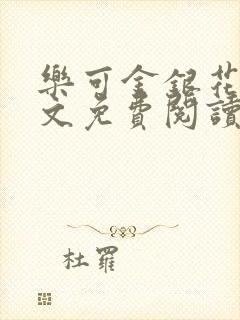 樂可金銀花
文免費閱讀
杜羅